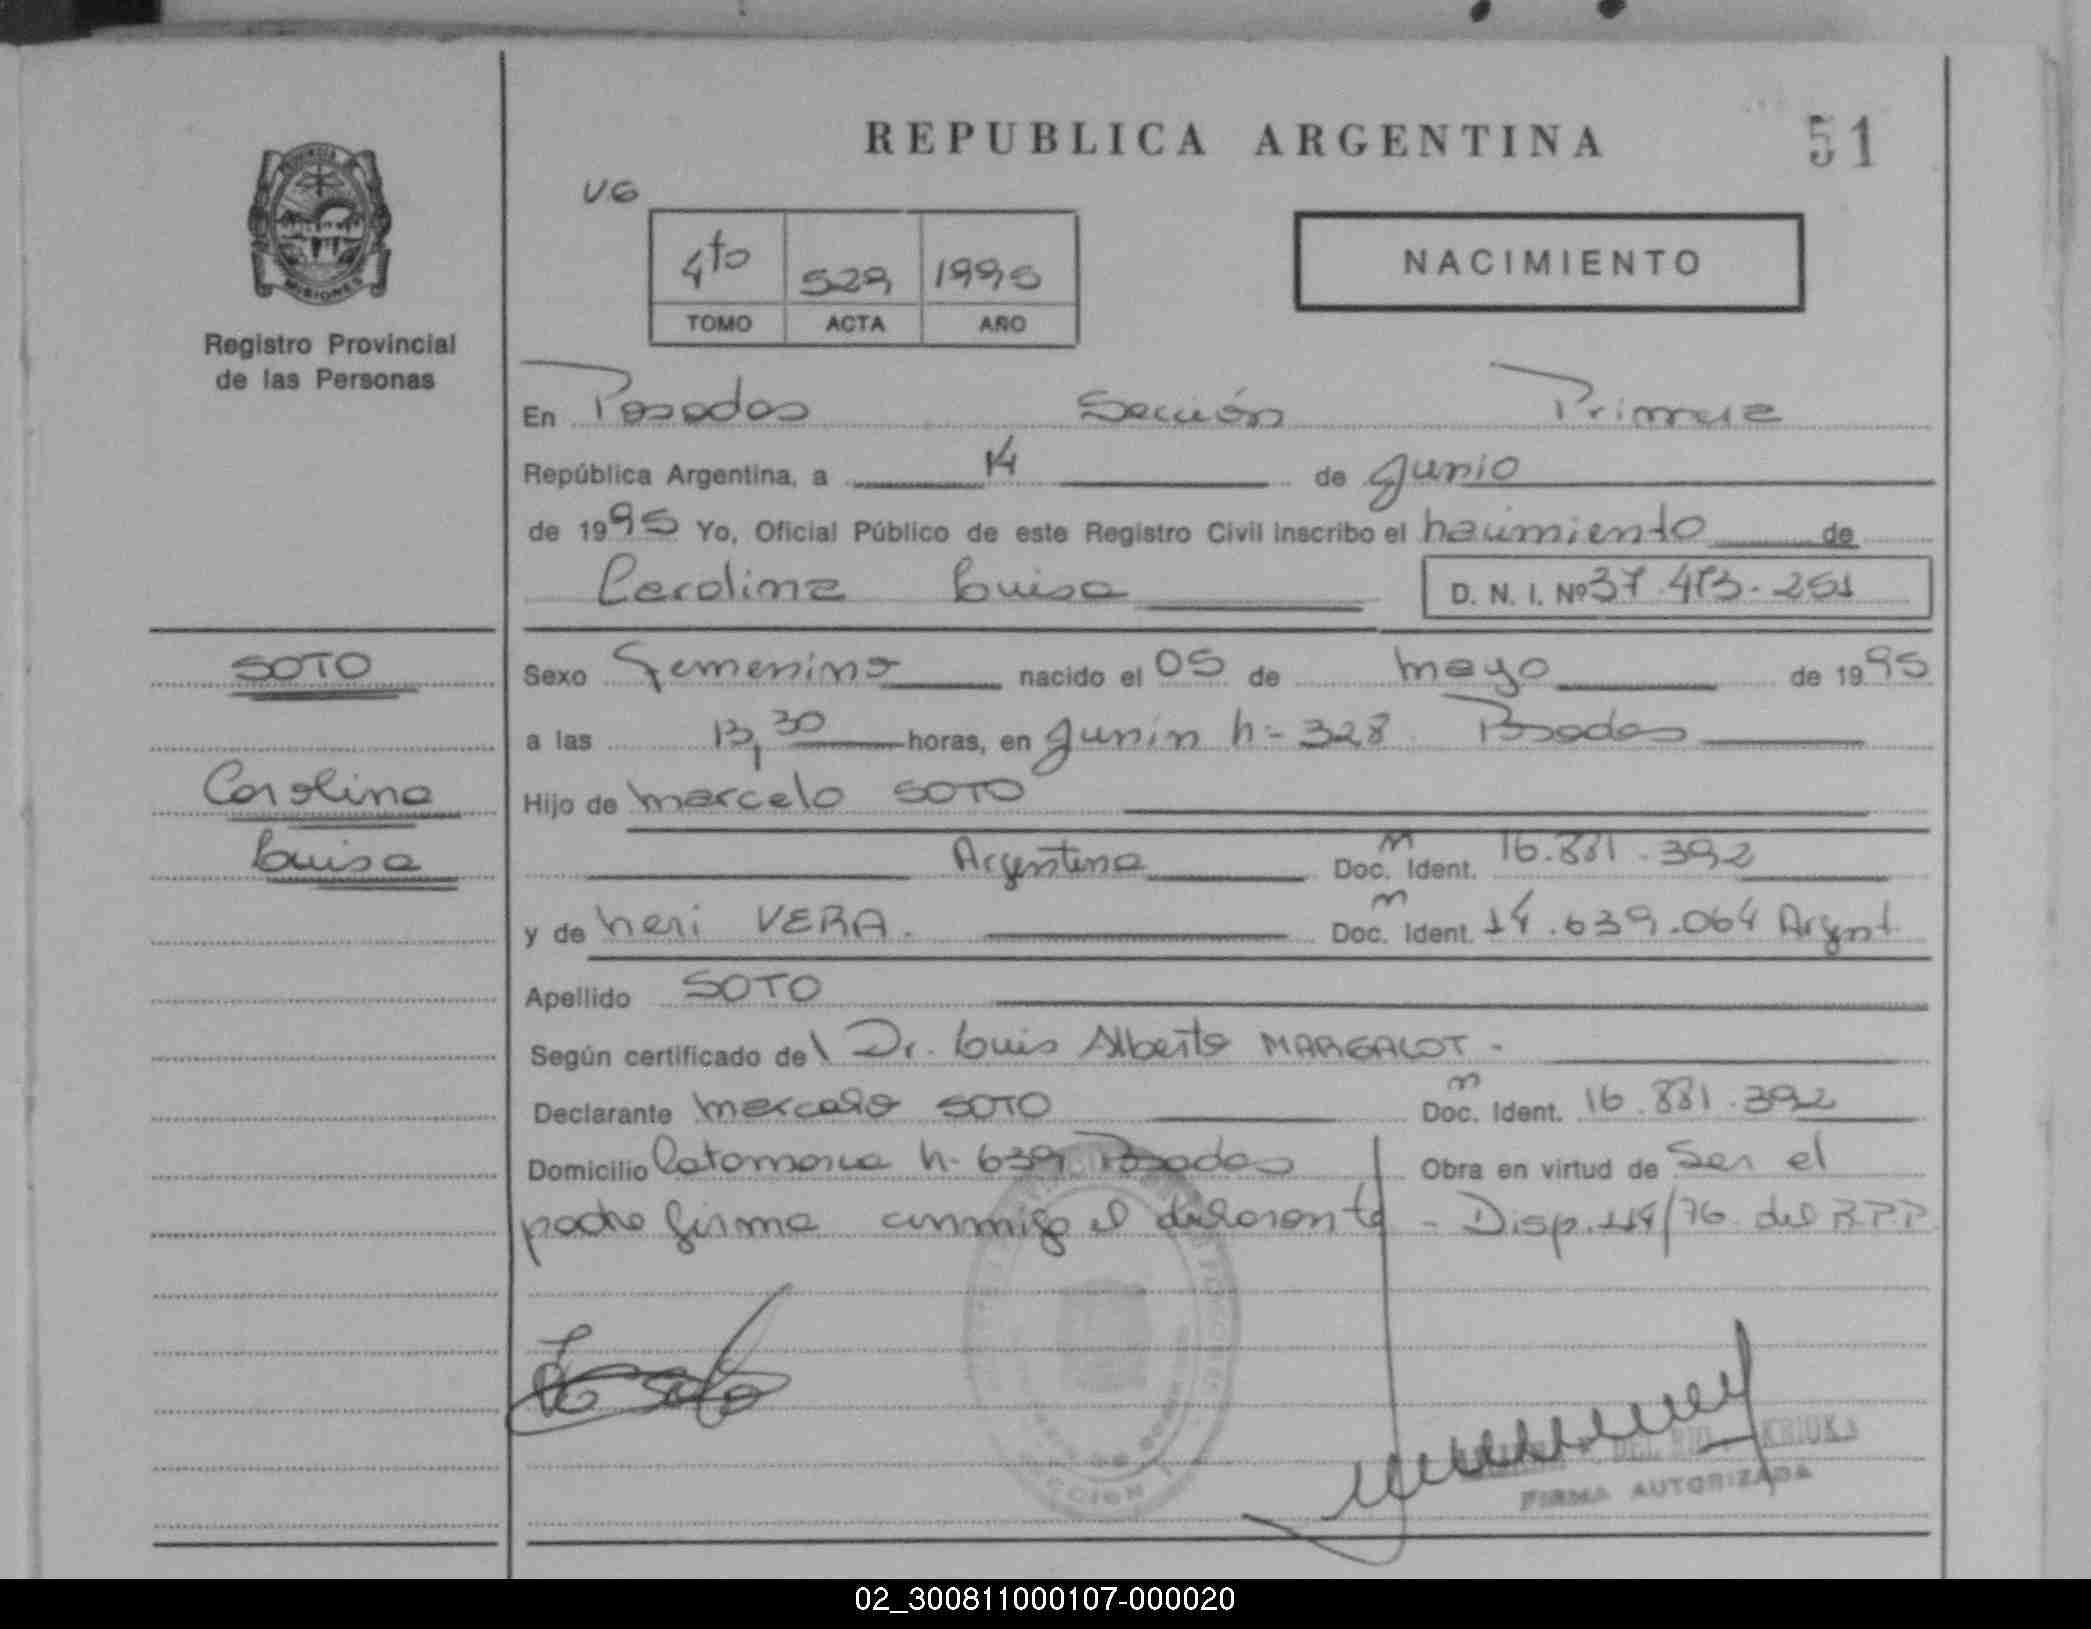 REPUBLICA ARGENTINA
51
VG
4to 529 1995
TOMO ACTA AÑO
NACIMIENTO
MISIONES
Registro Provincial
de las Personas
En Posadas Sección Primera
República Argentina, a 14 de Junio
de 1995 Yo, Oficial Público de este Registro Civil inscribo el nacimiento de
Carolina Luisa D. N. I. Nº 37.473.251
SOTO
Carolina
Luisa
Sexo Femenino nacido el 05 de mayo de 1995
a las 13,30 horas, en Junin n= 328 Posadas
Hijo de Marcelo SOTO
Argentina Doc. m Ident. 16.881.392
y de Neri VERA. Doc. m Ident. 14.639.064 Argent.
Apellido SOTO
Según certificado del Dr. Luis Alberto MARGALOT.
Declarante Marcelo SOTO Doc. m Ident. 16.881.392
Domicilio Catamarca n- 639 Posadas Obra en virtud de Ser el
padre firma conmigo el declarante - Disp. 114/76 del R.P.P.
Soto
SECCION
DEL RIO KRIUKA
FIRMA AUTORIZADA
02_300811000107-000020